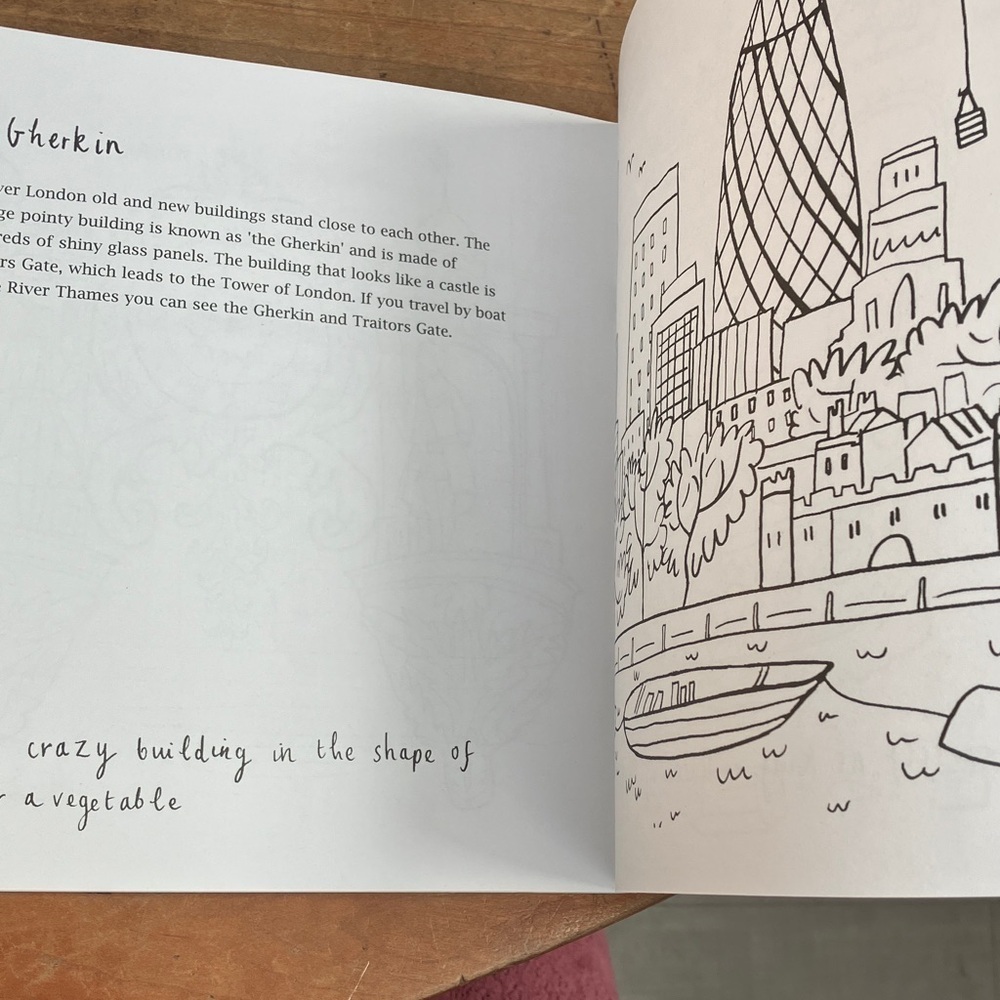 Gherkin
ver London old and new buildings stand close to each other. The
ge pointy building is known as 'the Gherkin' and is made of
reds of shiny glass panels. The building that looks like a castle is
rs Gate, which leads to the Tower of London. If you travel by boat
River Thames you can see the Gherkin and Traitors Gate.
crazy building in the shape of
a vegetable